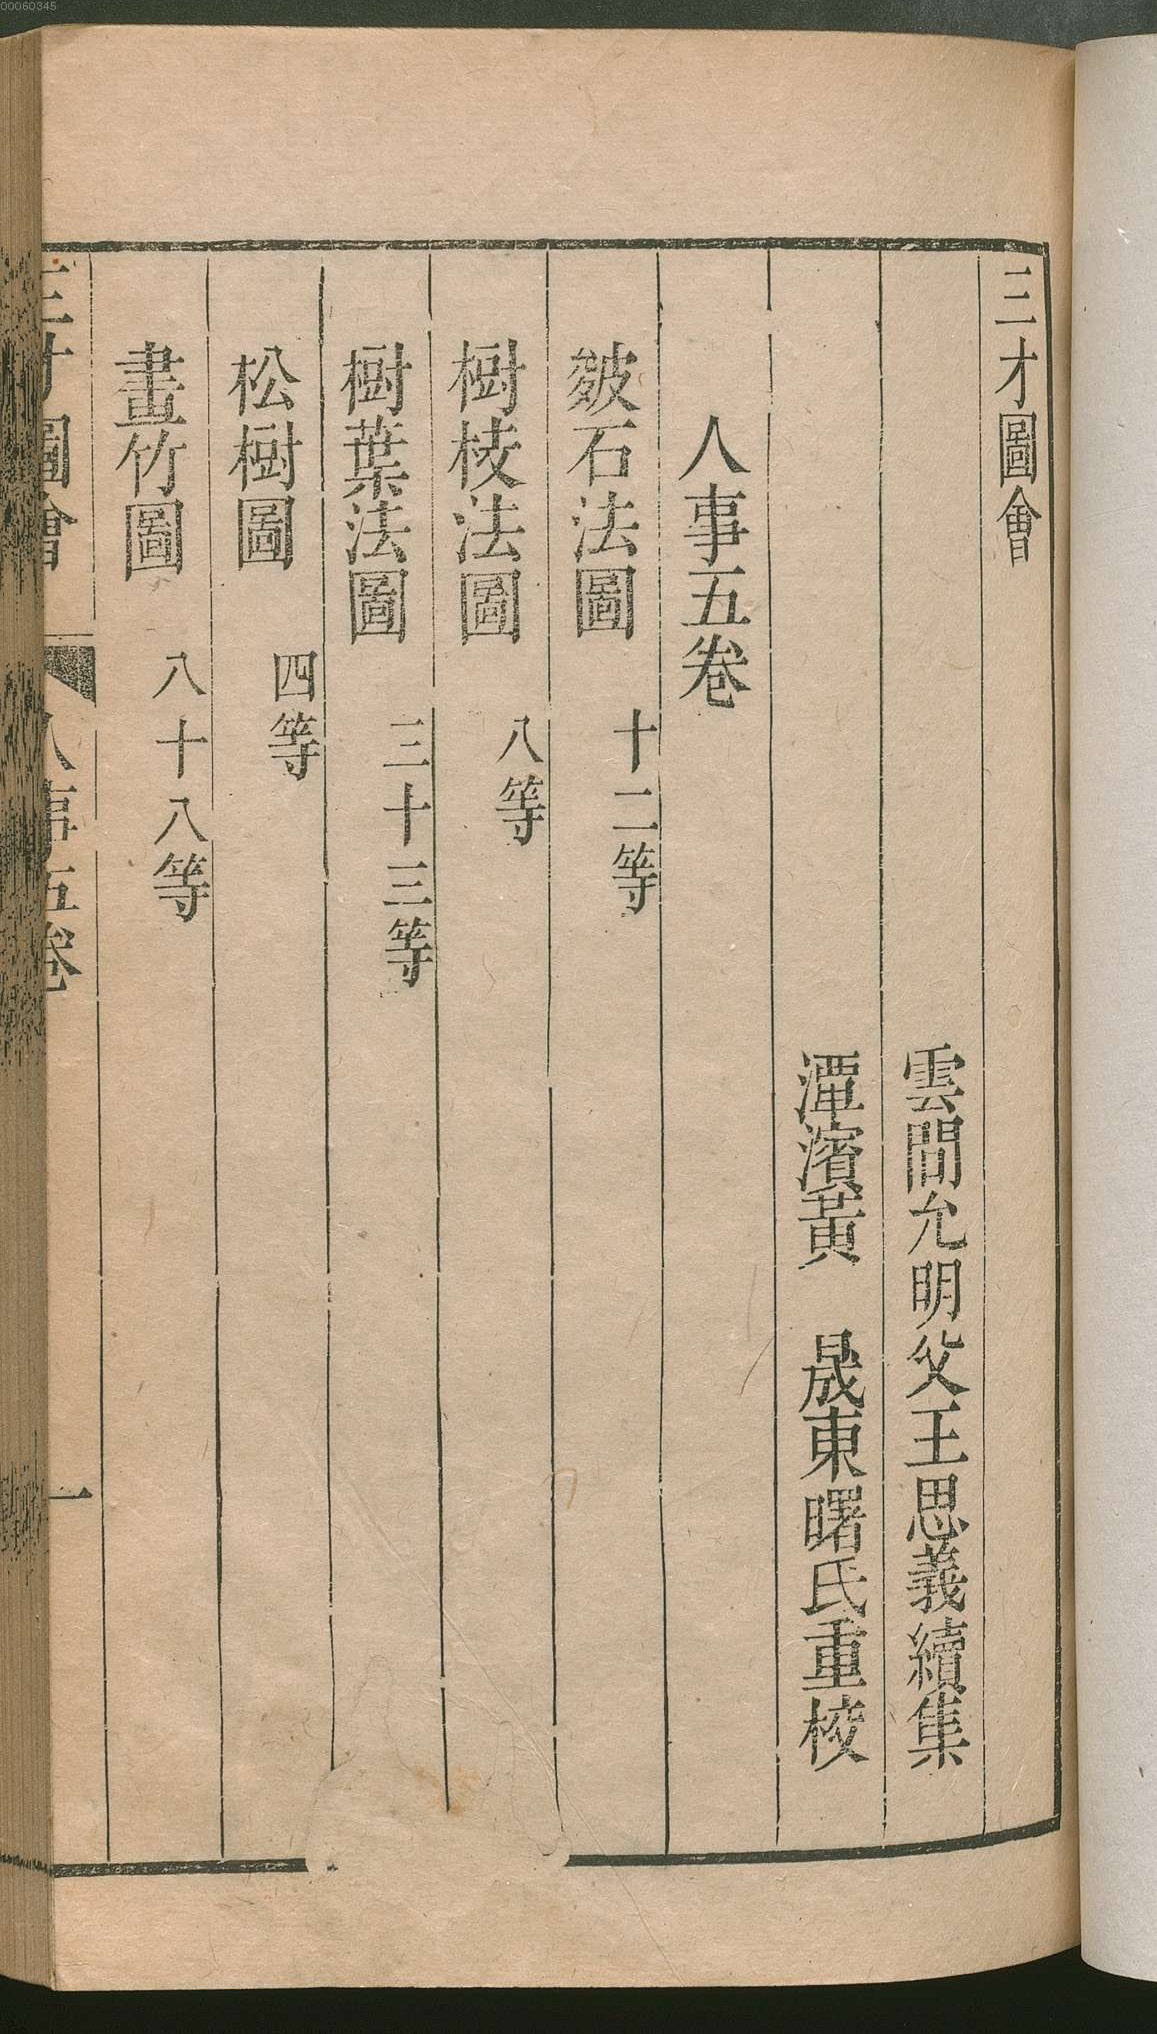 00060345
三才圖會
雲間允明父王思義續集
潭濱黃　晟東曙氏重校
人事五卷
皴石法圖　十二等
樹枝法圖　八等
樹葉法圖　三十三等
松樹圖　四等
畫竹圖　八十八等
三才圖會　人事五卷　一